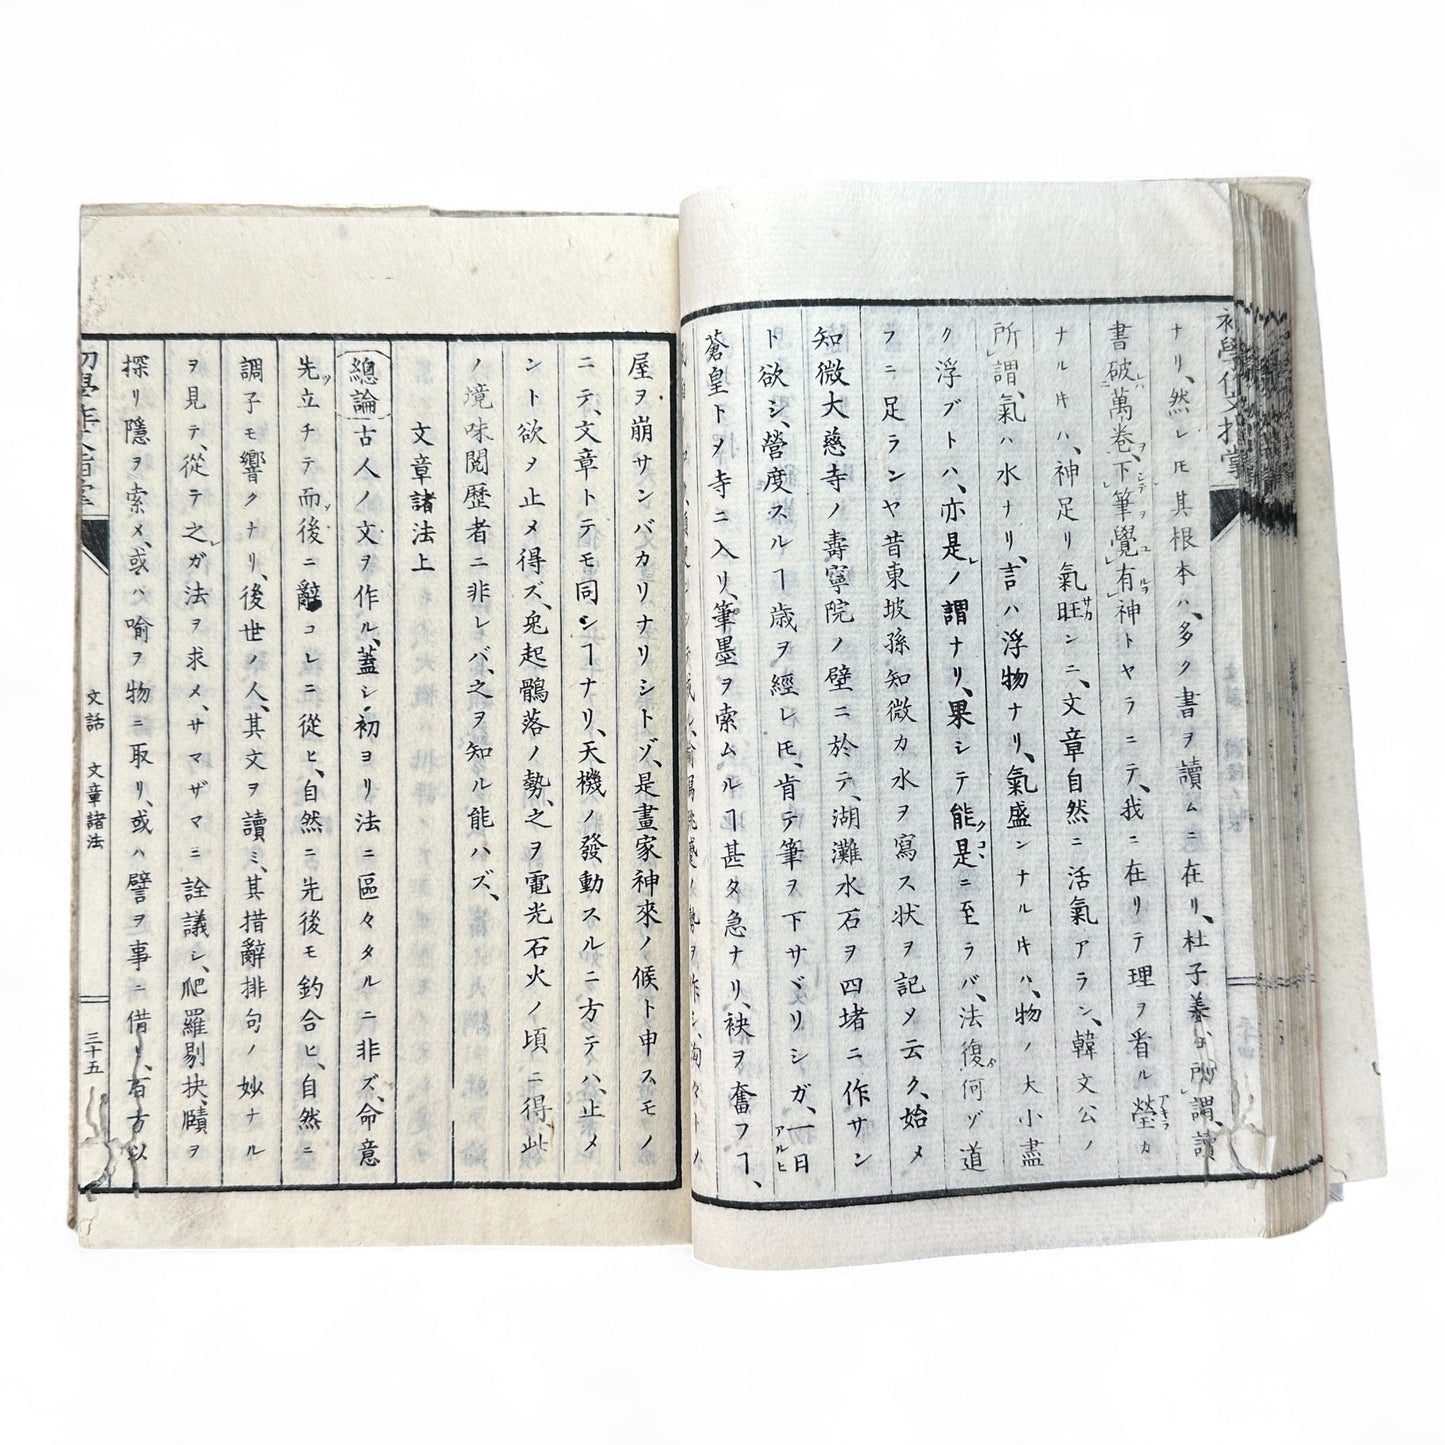 初學作文指掌
ナリ、然レ𪜈其根本ハ、多ク書ヲ讀ムニ在リ、杜子美ガ所謂、讀
書破萬巻、下筆覺有神トヤラニテ、我ニ在リテ理ヲ看ル瑩カ
ナルキハ、神足リ氣旺ンニ、文章自然ニ活氣アラン、韓文公ノ
所謂、氣ハ水ナリ、言ハ浮物ナリ、氣盛ンナルキハ、物ノ大小盡
ク浮ブトハ、亦是ノ謂ナリ、果シテ能是ニ至ラバ、法復何ゾ道
フニ足ランヤ昔東坡孫知微カ水ヲ寫ス状ヲ記メ云ク、始メ
知微大慈寺ノ壽寧院ノ壁ニ於テ、湖灘水石ヲ四堵ニ作サン
ト欲シ、營度スルヿ歳ヲ經レ𪜈、肯テ筆ヲ下サヾリシガ、一日
蒼皇トヲ寺ニ入リ、筆墨ヲ索ムルヿ甚タ急ナリ、袂ヲ奮フヿ、
屋ヲ崩サンバカリナリシトゾ、是畫家神來ノ候ト申スモノ
ニテ、文章トテモ同シヿナリ、天機ノ發動スルニ方テハ、止メ
ント欲メ止メ得ズ、兎起鶻落ノ勢、之ヲ電光石火ノ頃ニ得、此
ノ境味閲歴者ニ非レバ、之ヲ知ル能ハズ、
文章諸法上
總論 古人ノ文ヲ作ル、蓋シ初ヨリ法ニ區々タルニ非ズ、命意
先立チテ而後ニ辭コレニ從ヒ、自然ニ先後モ釣合ヒ、自然ニ
調子モ響クナリ、後世ノ人、其文ヲ讀ミ、其措辭排句ノ妙ナル
ヲ見テ、從テ之ガ法ヲ求メ、サマザマニ詮議シ、爬羅剔抉、賾ヲ
探リ隱ヲ索メ、或ハ喻ヲ物ニ取リ、或ハ譬ヲ事ニ借リ、百方以
初學作文指掌
文話 文章諸法
三十五